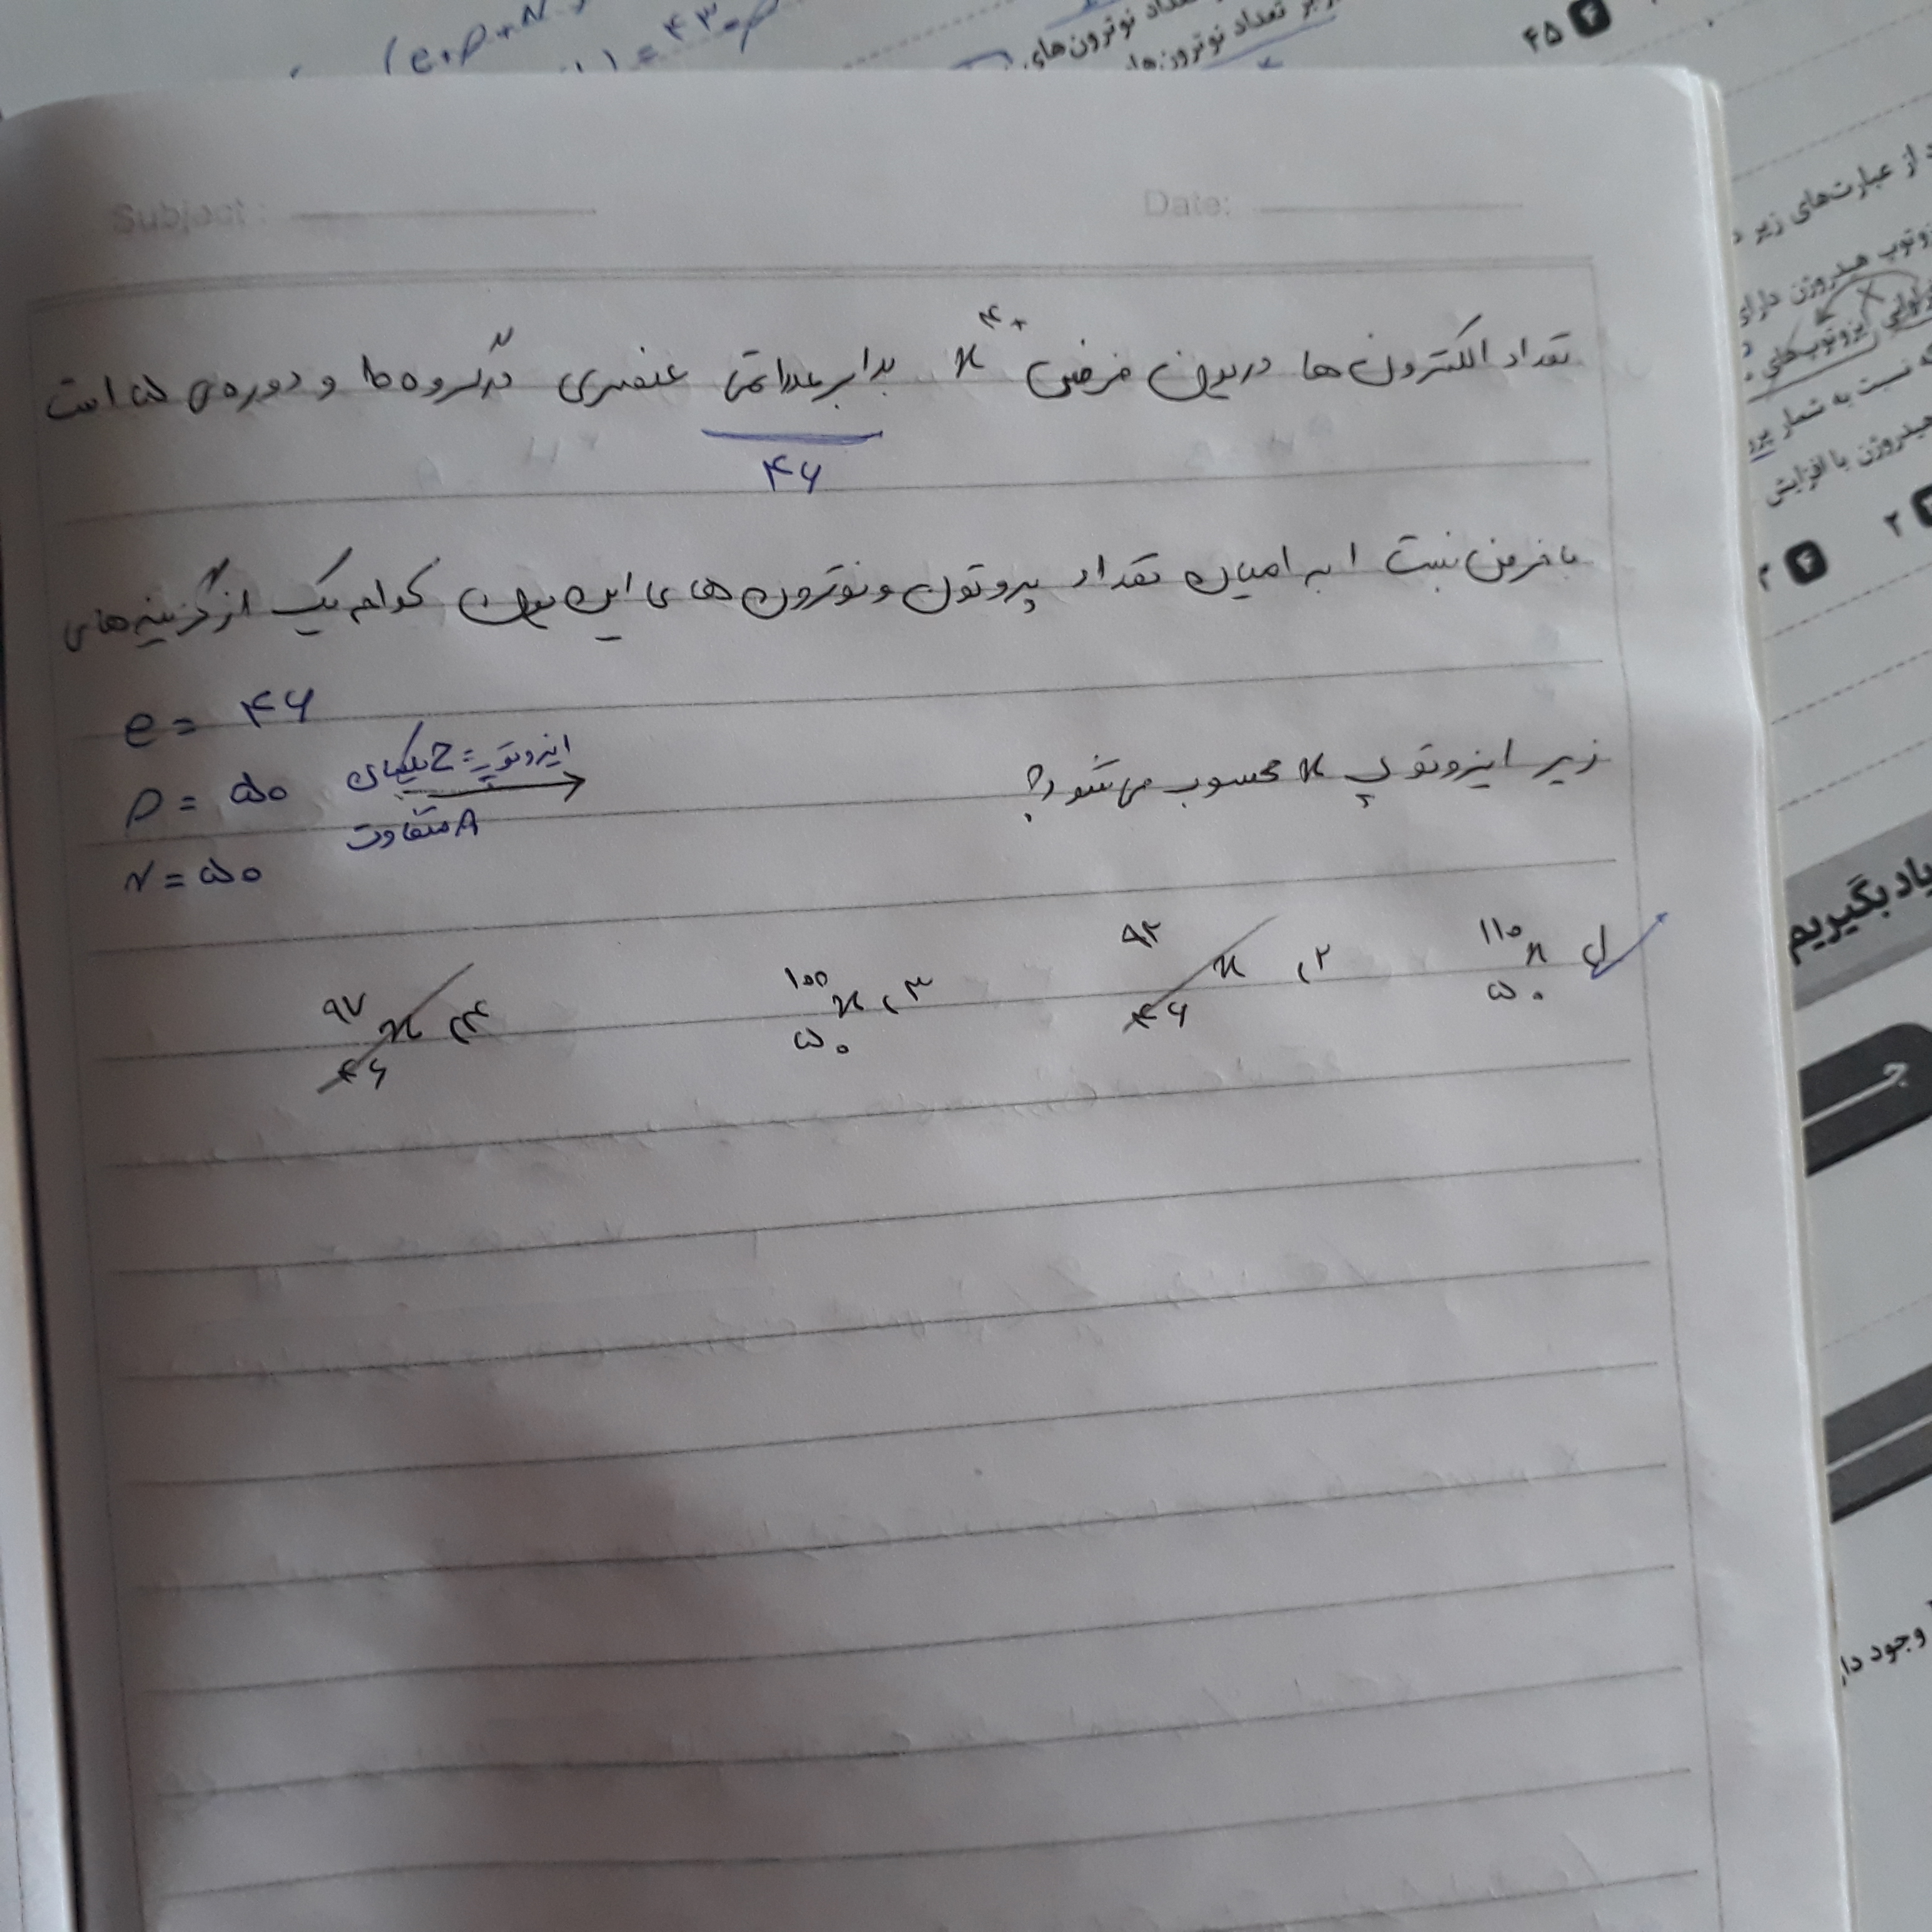 (e+p+N
= ۴۳۰p
تعداد نوترون‌های
بر تعداد نوترون‌ها
۴ ۴۵
Subject: Date:
تعداد الکترون ها در یون فرضی x⁴⁺ برابر عدد اتمی عنصری در گروه ۱۰ و دوره ی ۵ است
۴۶
با فرض نسبت ۱ به ۱ میان تعداد پروتون و نوترون های این یون کدام یک از گزینه های
زیر ایزوتوپ x محسوب می شود؟
e = ۴۶
p = ۵۰
N = ۵۰
ایزوتوپ = Z یکسان
A متفاوت
۱) ¹¹⁰₅₀x
۲) ⁹²₄₆x
۳) ¹⁰⁰₅₀x
۴) ⁹⁷₄₆x
از عبارت‌های زیر
هیدروژن دارای
ایزوتوپ‌های
نسبت به شمار
هیدروژن با افزایش
۲
۴
یاد بگیریم
جـ
وجود دا